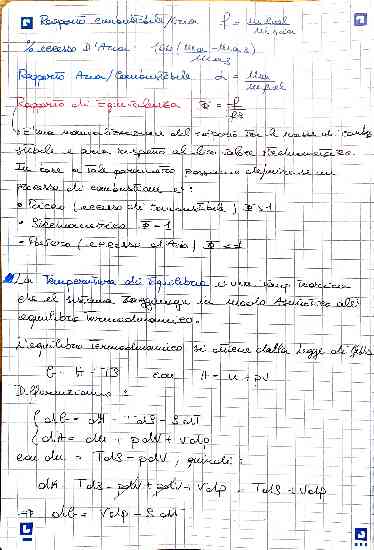 Rapporto combustibile/aria f = m fuel / m aria
% eccesso D'Aria: 100 (ma - mas) / mas
Rapporto Aria/Combustibile α = ma / m fuel
Rapporto di Equivalenza Φ = f / fs
È una normalizzazione del rapporto tra le masse di combu
stibile e aria rispetto al loro valore stechiometrico.
In base a tale parametro possiamo definire se un
processo di combustione è:
• Ricco (eccesso di combustibile) Φ > 1
• Stechiometrico Φ = 1
• Povero (eccesso d'Aria) Φ < 1
La Temperatura di Equilibrio è una temp teorica
che il sistema raggiunge in modo Asintotico all'
equilibrio termodinamico.
L'equilibrio Termodinamico si ottiene dalla Legge di Gibbs
G = H - TS con H = u + pv
Differenziamo:
dG = dH - TdS - SdT
dH = du + pdV + Vdp
con du = TdS - pdV, quindi:
dH = TdS - pdV + pdV + Vdp = TdS + Vdp
⇒ dG = Vdp - SdT